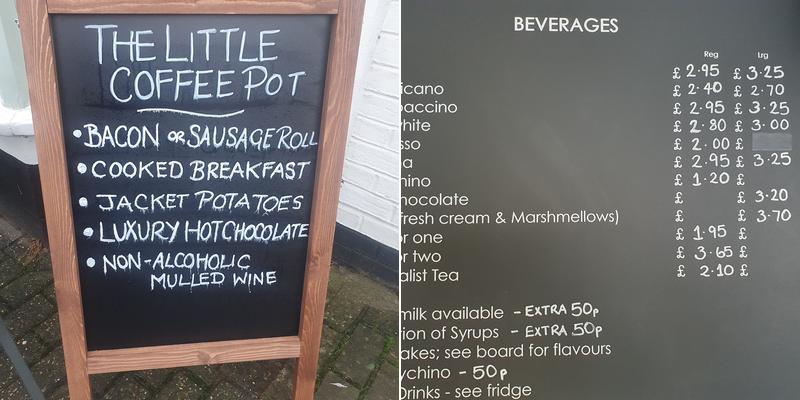 THE LITTLE
COFFEE POT
• BACON OR SAUSAGE ROLL
• COOKED BREAKFAST
• JACKET POTATOES
• LUXURY HOT CHOCOLATE
• NON-ALCOHOLIC
MULLED WINE
BEVERAGES
Reg Lrg
£ 2.95 £ 3.25
icano £ 2.40 £ 2.70
paccino £ 2.95 £ 3.25
white £ 2.80 £ 3.00
sso £ 2.00 £
a £ 2.95 £ 3.25
hino £ 1.20 £
hocolate £ £ 3.20
fresh cream & Marshmellows) £ £ 3.70
or one £ 1.95 £
or two £ 3.65 £
alist Tea £ 2.10 £
milk available - EXTRA 50p
ion of Syrups - EXTRA 50p
akes; see board for flavours
ychino - 50p
Drinks - see fridge